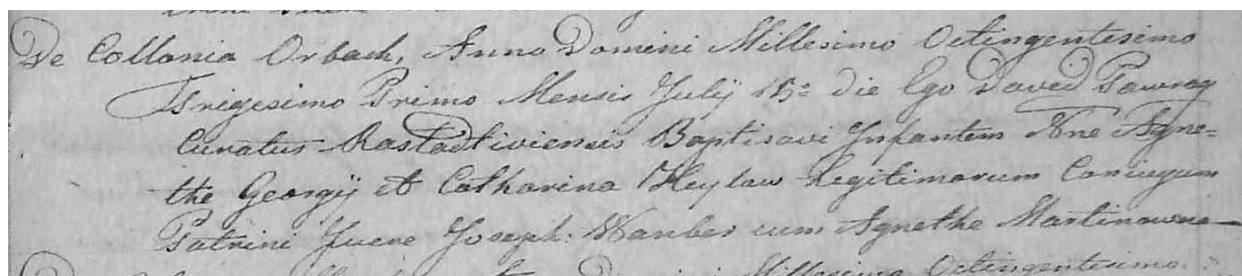 De Collonia Orbach, Anno Domini Millesimo Octingentesimo
Trigesimo Primo Mensis Julij 15= die Ego David
Curatus Rastadiviensis Baptisavi Infantem Nne Agne=
the Georgij et Catharina Heylaw Legitimorum Coniugum
Patrini fuere Joseph: cum Agnethe Martinowna
Domini Millesimo Octingentesimo